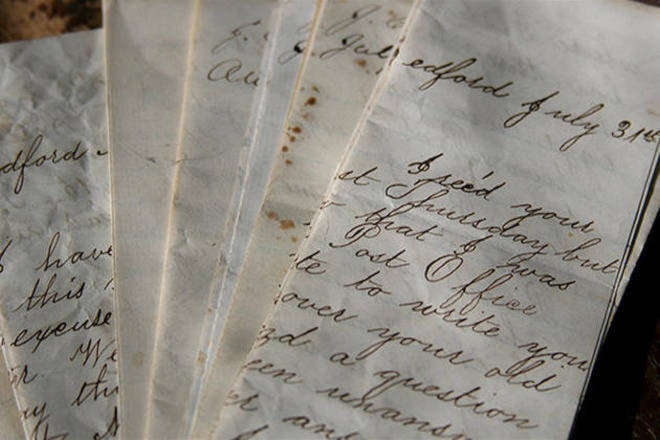 dford
I have
this
excuse
We
Au
Jul
edford July 31st
I rec'd your
st Thursday but
that I was
Post Office
te to write you
over your old
d a question
een unansw
er an